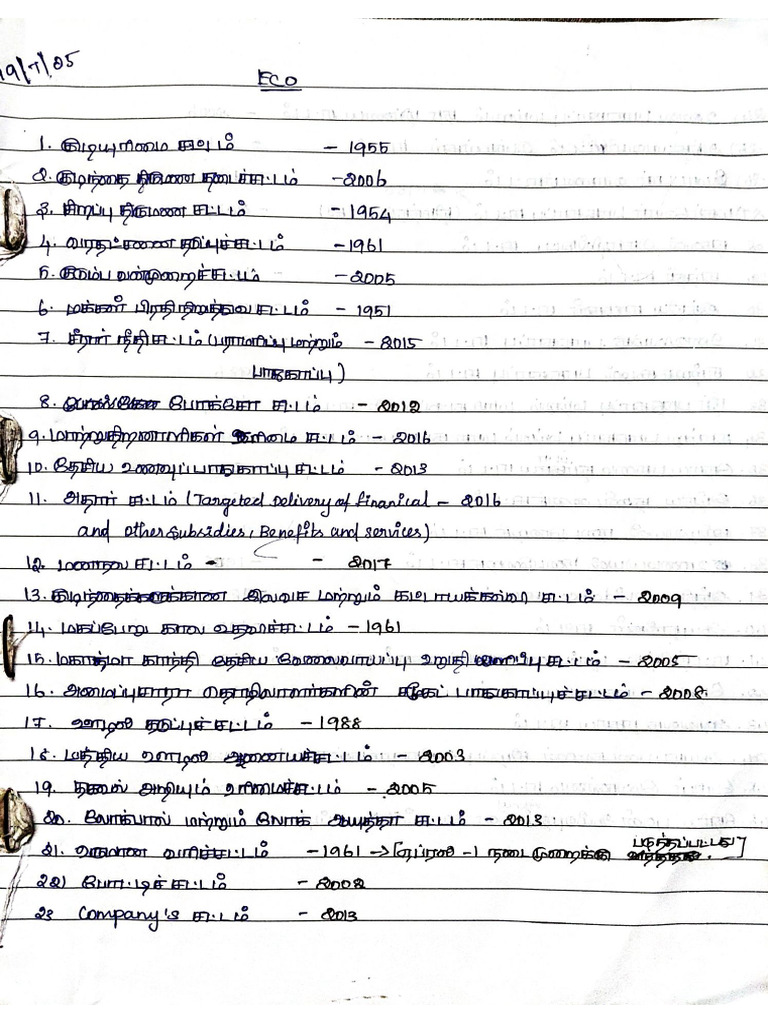 19/7/25
ECO
1. குடியுரிமை சட்டம் - 1955
2. குழந்தை திருமண தடைச்சட்டம் - 2006
3. சிறப்பு திருமண சட்டம் - 1954
4. வரதட்சணை தடுப்புச்சட்டம் - 1961
5. குடும்ப வன்முறைச்சட்டம் - 2005
6. மக்கள் பிரதிநிதித்துவ சட்டம் - 1951
7. சிறார் நீதி சட்டம் (பராமரிப்பு மற்றும் - 2015
பாதுகாப்பு)
8. போக்சோ சட்டம் - 2012
9. மாற்றுதிறனாளிகள் உரிமை சட்டம் - 2016
10. தேசிய உணவுப்பாதுகாப்பு சட்டம் - 2013
11. அதார் சட்டம் (Targeted Delivery of Finanical - 2016
and other subsidies, Benefits and services)
12. மனநல சட்டம் - 2017
13. குழந்தைகளுக்கான இலவச மற்றும் கட்டாயக்கல்வி சட்டம் - 2009
14. மகப்பேறு கால உதவிச்சட்டம் - 1961
15. மகாத்மா காந்தி தேசிய வேலைவாய்ப்பு உறுதி அளிப்பு சட்டம் - 2005
16. அமைப்புசாரா தொழிலாளர்களின் சமூகப் பாதுகாப்புச்சட்டம் - 2008
17. ஊழல் தடுப்புச்சட்டம் - 1988
18. மத்திய ஊழல் ஆணையச்சட்டம் - 2003
19. தகவல் அறியும் உரிமைச்சட்டம் - 2005
20. லோக்பால் மற்றும் லோக் ஆயுக்தா சட்டம் - 2013
21. வருமான வரிச்சட்டம் - 1961 → [ஏப்ரல் -1 நடைமுறைக்கு படுத்தப்பட்டது]
22) போட்டிச்சட்டம் - 2002
23 Company's சட்டம் - 2013